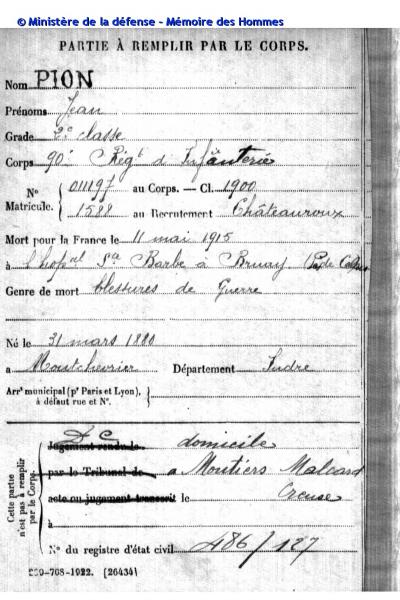 © Ministère de la défense - Mémoire des Hommes
PARTIE À REMPLIR PAR LE CORPS.
Nom PION
Prénoms Jean
Grade 2e classe
Corps 90e Régt d'Infanterie
No 011197 au Corps. — Cl. 1900
Matricule. 1588 au Recrutement Châteauroux
Mort pour la France le 11 mai 1915
à l'hopal Ste Barbe à Bruay (Pas de Calais
Genre de mort blessures de Guerre
Né le 31 mars 1880
à Montchevrier Département Indre
Arrt municipal (pr Paris et Lyon),
à défaut rue et No.
Cette partie
n'est pas à remplir
par le Corps.
Jugement rendu le D.C. domicile
par le Tribunal de a Moutiers Malcard
acte ou jugement transcrit le Creuse
à
No du registre d'état civil 486/127
-708-1922. (26434)